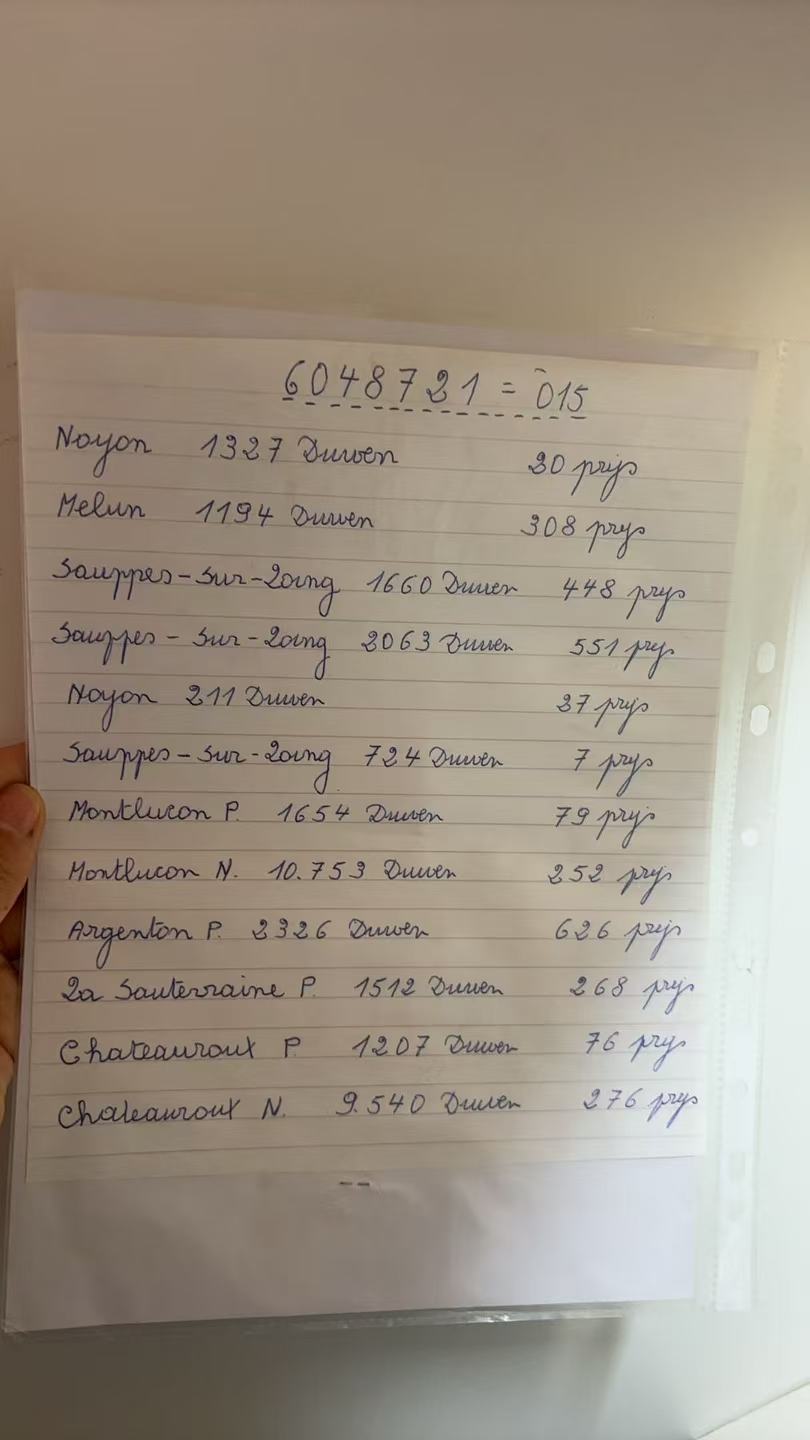 6048721 = 015
Noyon 1327 Duiven 20 prijs
Melun 1194 Duiven 308 prijs
Souppes-Sur-Loing 1660 Duiven 448 prijs
Souppes-Sur-Loing 2063 Duiven 551 prijs
Noyon 211 Duiven 27 prijs
Souppes-Sur-Loing 724 Duiven 7 prijs
Montlucon P. 1654 Duiven 79 prijs
Montlucon N. 10.753 Duiven 252 prijs
Argenton P. 2326 Duiven 626 prijs
La Souterraine P. 1512 Duiven 268 prijs
Chateauroux P. 1207 Duiven 76 prijs
Chateauroux N. 9.540 Duiven 276 prijs